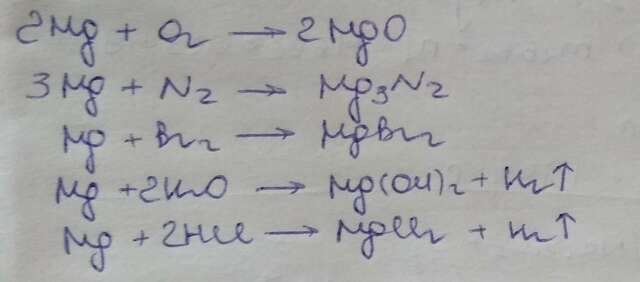 2Mg + O₂ → 2MgO
3Mg + N₂ → Mg₃N₂
Mg + Br₂ → MgBr₂
Mg + 2H₂O → Mg(OH)₂ + H₂↑
Mg + 2HCl → MgCl₂ + H₂↑